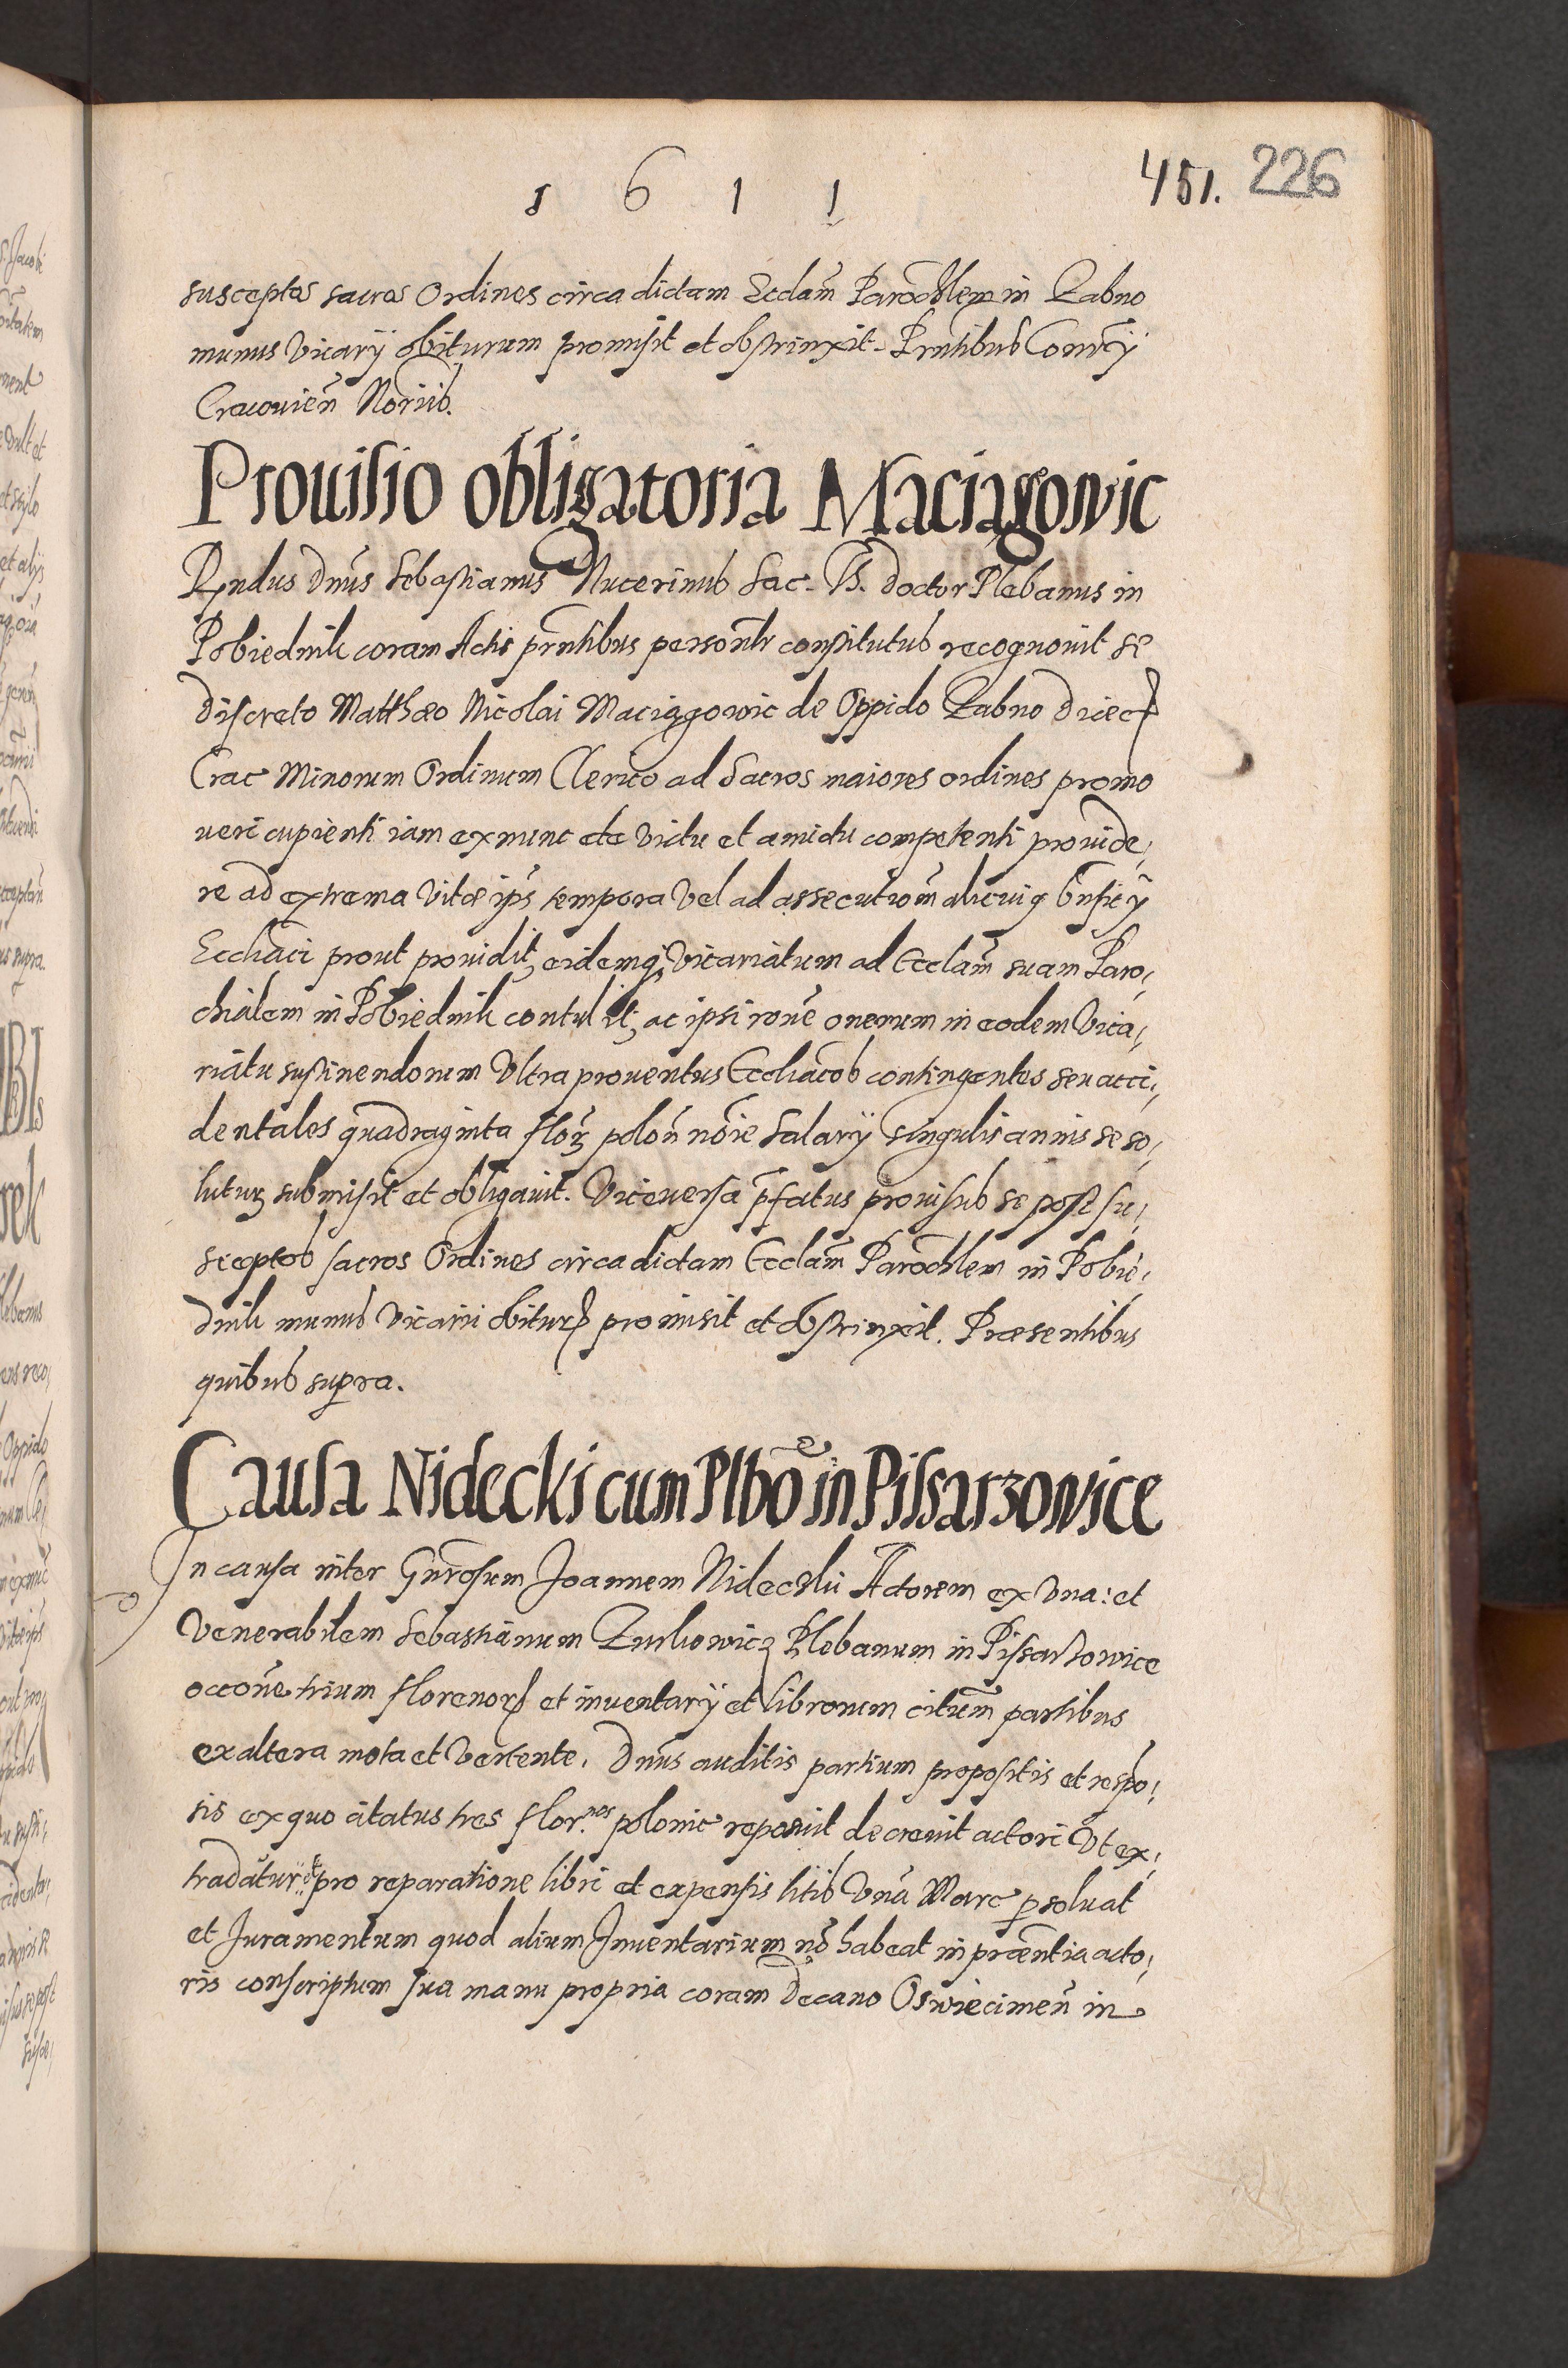 1 6 1 1
451. 226
susceptos sacros Ordines circa dictam Ecclam̃ Parochlem in Zabno
munus Vicarÿ obiturum promisit et obstrinxit. Pñtibus Consrÿ
Cracouien̄ Noriib.
Prouisio obligatoria Maciagowic
Rndus Dnus Sebastianus Nucerinus Sac. Th. doctor Plebanus in
Pobiednik coram Actis prñtibus personlr constitutus recognouit se
discreto Matthæo Nicolai Maciągowic de Oppido Zabno Diec
Crac Minorum Ordinum Clerico ad Sacros maiores ordines promo
ueri cupienti iam ex nunc de Victu et amictu competenti prouide,
re ad extrema Vitæ ips tempora Vel ad assecutiom̄ alicuiq Bnficÿ
Ecclīaci prout prouidit, eidemq, Vicariatum ad Ecclam̃ suam Paro,
chialem in Pobiednik contulit, ac ipsi rone onerum in eodem Vica,
riatu sustinendorum Vltra prouentus Eccliacos contingentes seu acci,
dentales quadraginta flor polon noie Salarÿ singulis annis se so,
lutur submisit et obligauit. Viceuersa pfatus prouisus se post su,
sceptos sacros Ordines circa dictam Ecclam̃ Parochlem in Pobie,
dnik munus Vicarii obitur promisit et obstrinxit. Præsentibus
quibus supra.
Causa Nidecki cum Plbo in Pissarzowice
In causa inter Gnrosum Joannem Nideczki Actorem ex Vna: et
Venerabilem Sebastianum Zurkowicz Plebanum in Pissarzowice
occone trium florenor et inuentarÿ et librorum citum̄ partibus
ex altera mota et Vertente. Dnus auditis partium propositis et respo,
sis ex quo citatus tres flor.nos polonic reposuit decreuit actori Vt ex,
tradatur et pro reparatione libri et expensis litis Vna Marc psoluat
et Juramentum quod alium Inuentarium no habeat in præntia acto,
ris conscriptum sua manu propria coram Decano Oswiecimen̄ in